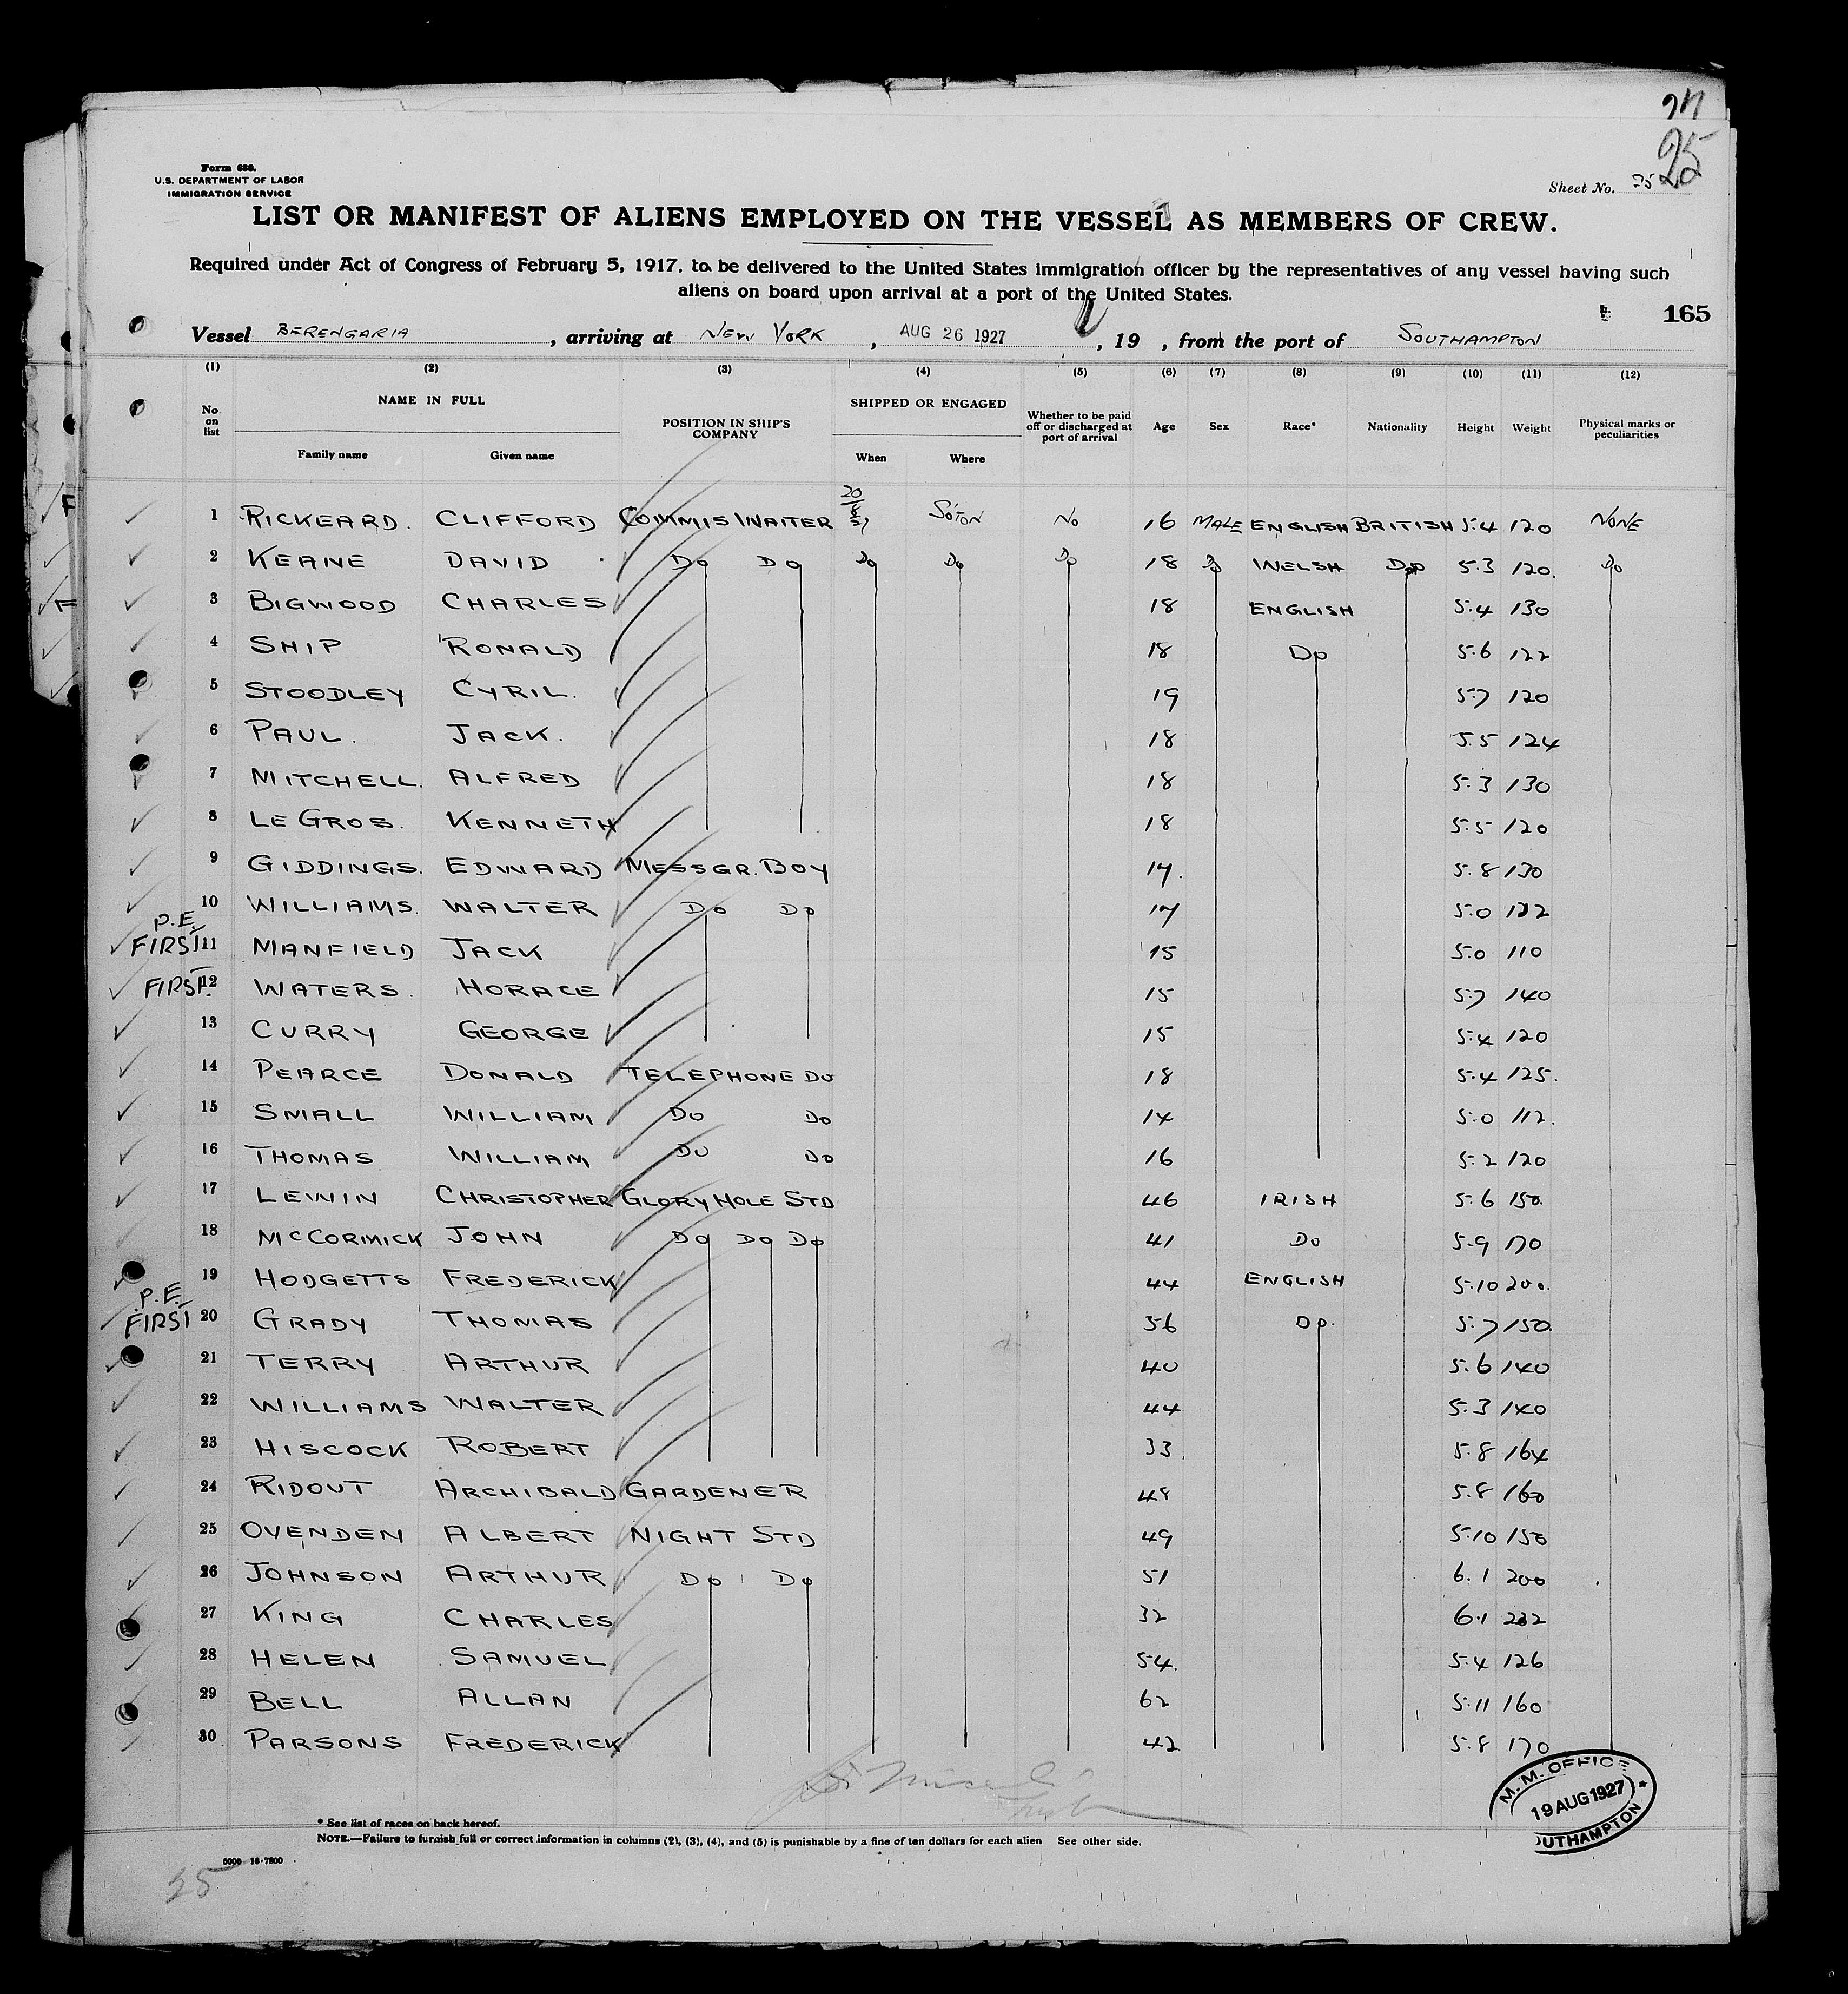 27
25
Form 680.
U.S. DEPARTMENT OF LABOR
IMMIGRATION SERVICE
Sheet No. 25
LIST OR MANIFEST OF ALIENS EMPLOYED ON THE VESSEL AS MEMBERS OF CREW.
Required under Act of Congress of February 5, 1917, to be delivered to the United States immigration officer by the representatives of any vessel having such
aliens on board upon arrival at a port of the United States.
165
Vessel BERENGARIA , arriving at NEW YORK , AUG 26 1927 , 19 , from the port of SOUTHAMPTON
(1) (2) (3) (4) (5) (6) (7) (8) (9) (10) (11) (12)
No. on list NAME IN FULL Family name Given name POSITION IN SHIP'S COMPANY SHIPPED OR ENGAGED When Where Whether to be paid off or discharged at port of arrival Age Sex Race* Nationality Height Weight Physical marks or peculiarities
1 RICKEARD. CLIFFORD COMMIS WAITER 20/8/27 SO'TON NO 16 MALE ENGLISH BRITISH 5.4 120 NONE
2 KEANE DAVID DO DO DO DO DO 18 DO WELSH DO 5.3 120. DO
3 BIGWOOD CHARLES 18 ENGLISH 5.4 130
4 SHIP RONALD 18 DO 5.6 122
5 STOODLEY CYRIL. 19 5.7 120
6 PAUL. JACK. 18 5.5 124
7 MITCHELL. ALFRED 18 5.3 130
8 LE GROS. KENNETH 18 5.5 120
9 GIDDINGS. EDWARD MESSGR. BOY 17. 5.8 130
10 WILLIAMS. WALTER DO DO 17 5.0 132
P.E.
FIRST 11 MANFIELD JACK 15 5.0 110
FIRST. 12 WATERS. HORACE 15 5.7 140
13 CURRY GEORGE 15 5.4 120
14 PEARCE DONALD TELEPHONE DO 18 5.4 125.
15 SMALL WILLIAM DO DO 14 5.0 112.
16 THOMAS WILLIAM DO DO 16 5.2 120
17 LEWIN CHRISTOPHER GLORY HOLE STD 46 IRISH 5.6 150.
18 McCORMICK JOHN DO DO DO 41 DO 5.9 170
19 HODGETTS FREDERICK 44 ENGLISH 5.10 200.
P.E.
FIRST 20 GRADY THOMAS 56 DO. 5.7 150.
21 TERRY ARTHUR 40 5.6 140
22 WILLIAMS WALTER 44 5.3 140
23 HISCOCK ROBERT 33 5.8 164
24 RIDOUT ARCHIBALD GARDENER 48 5.8 160
25 OVENDEN ALBERT NIGHT STD 49 5.10 150
26 JOHNSON ARTHUR DO DO 51 6.1 200
27 KING CHARLES 32 6.1 232
28 HELEN SAMUEL 54. 5.4 126
29 BELL ALLAN 62 5.11 160
30 PARSONS FREDERICK 42 5.8 170
M.M. OFFICE
19 AUG 1927
OUTHAMPTON
* See list of races on back hereof.
NOTE.—Failure to furnish full or correct information in columns (2), (3), (4), and (5) is punishable by a fine of ten dollars for each alien See other side.
5000 16-7800
25